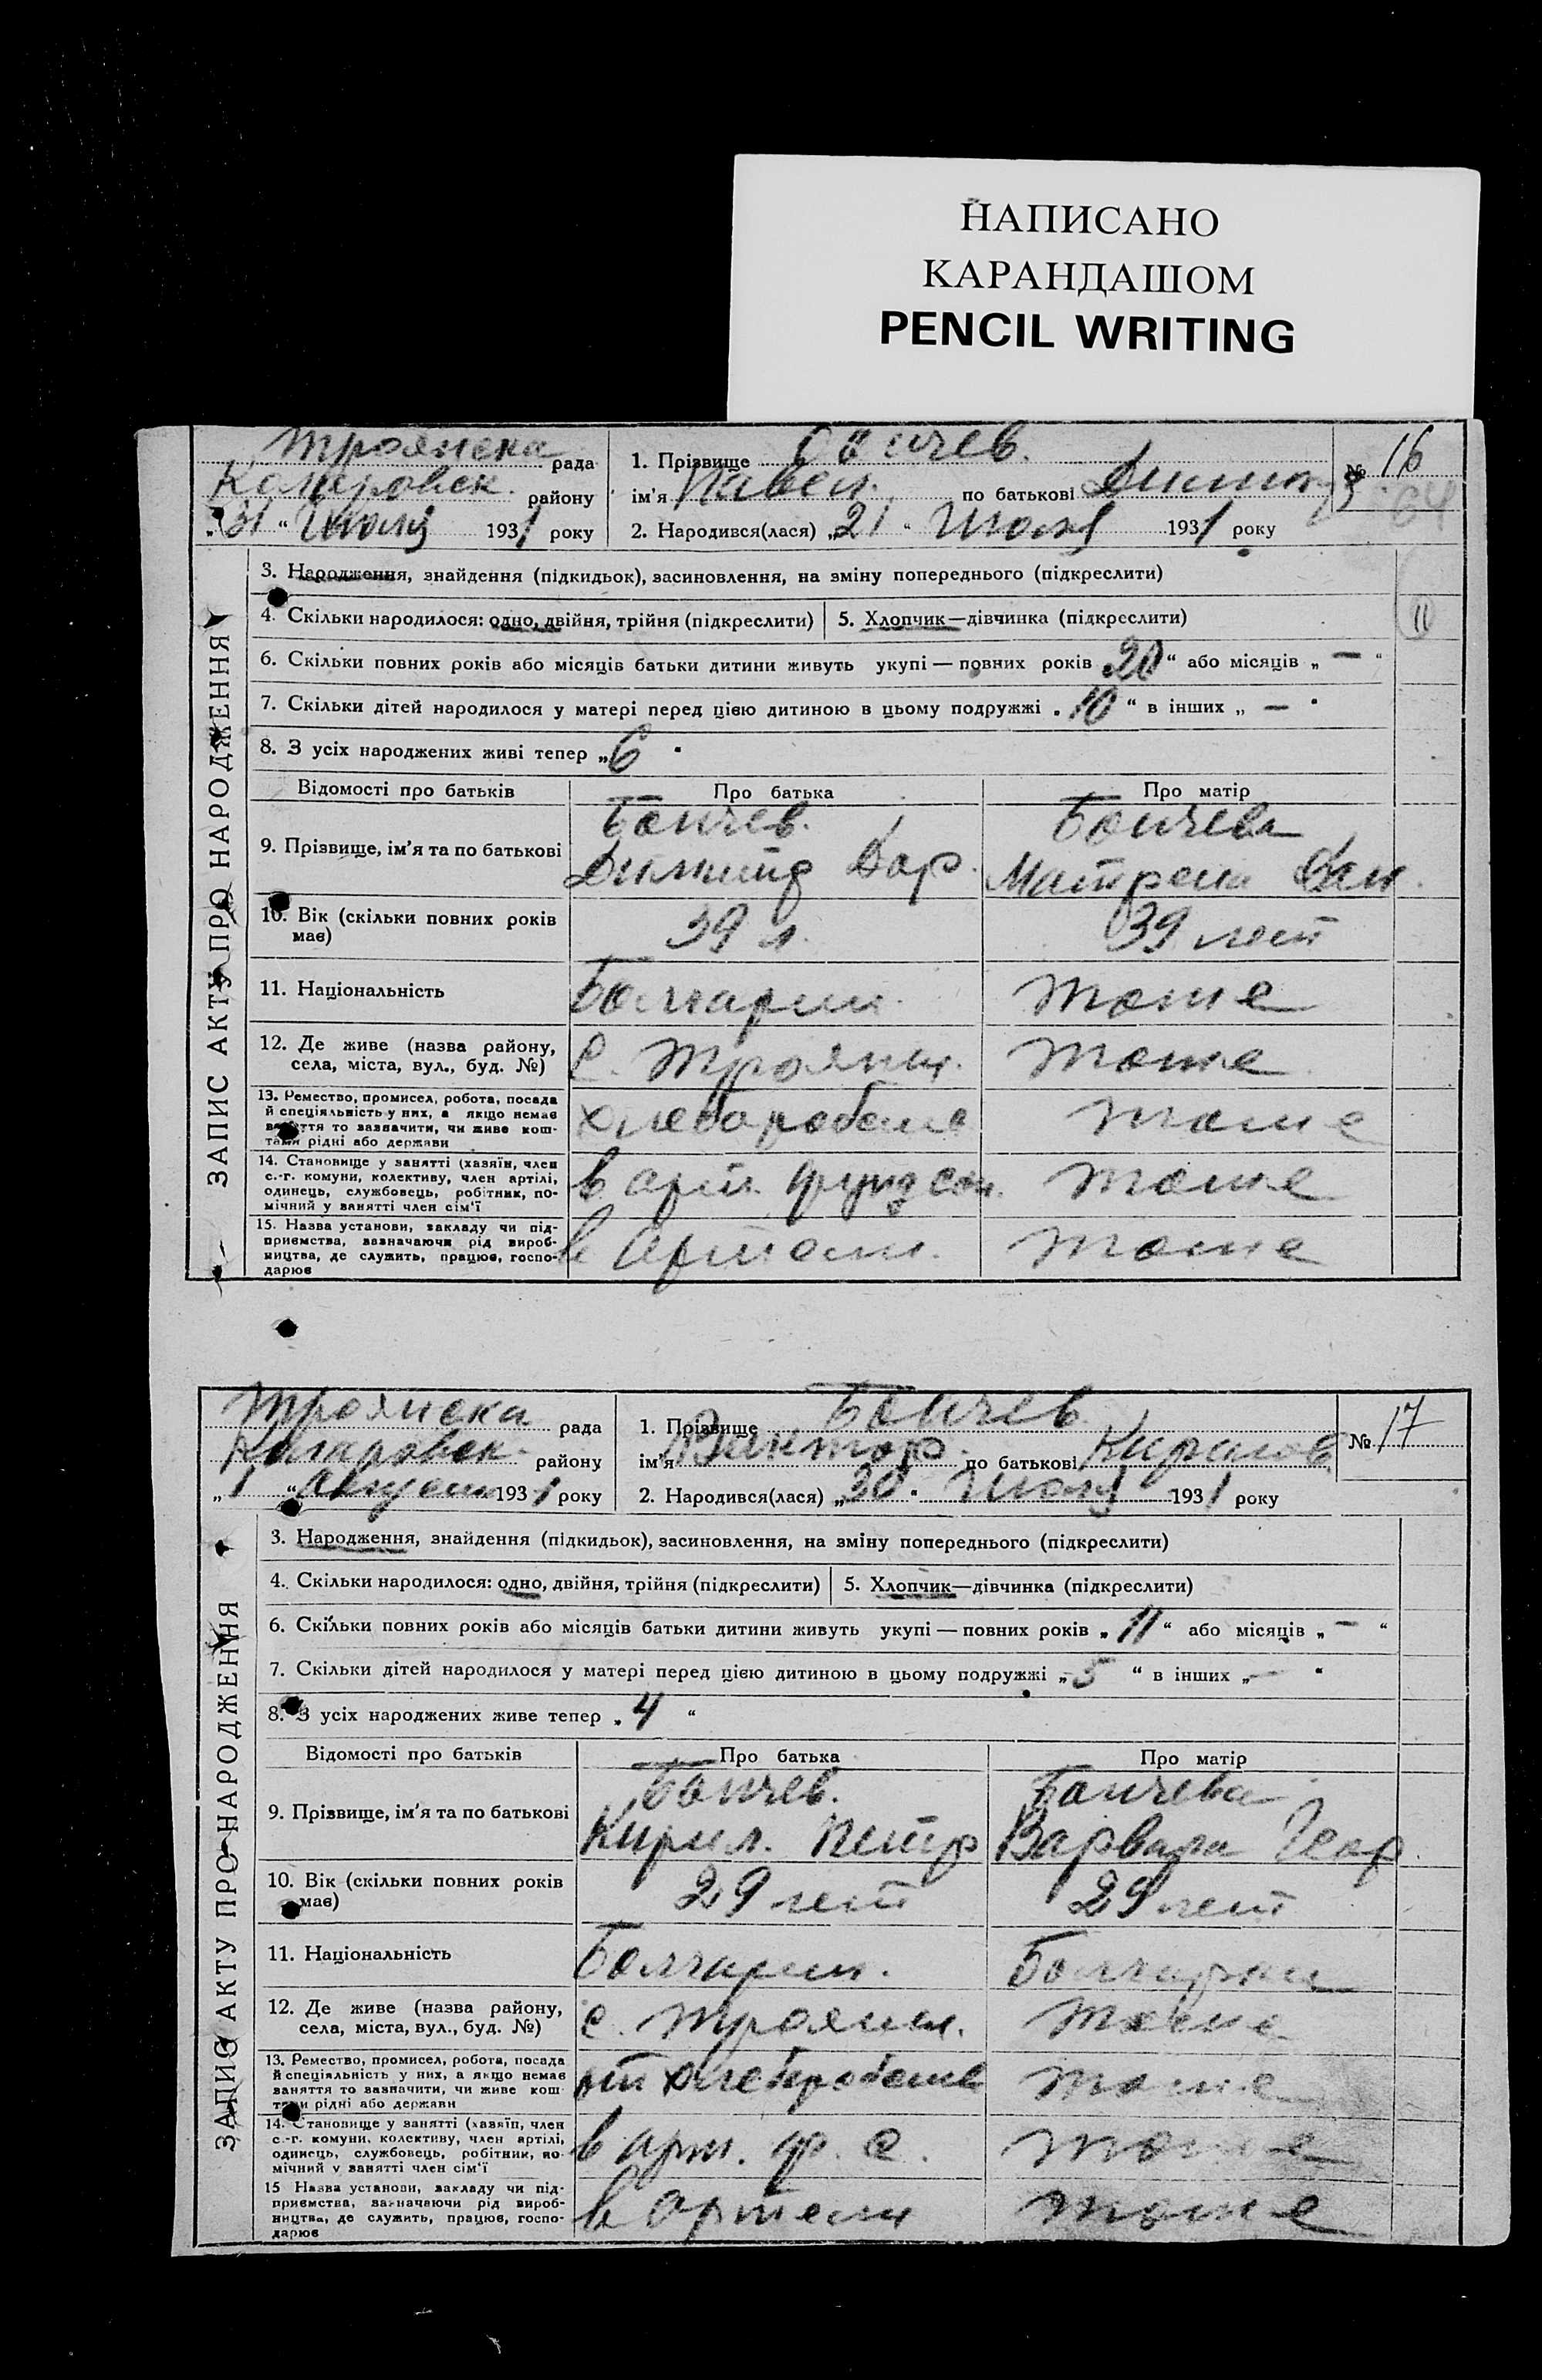 НАПИСАНО
КАРАНДАШОМ
PENCIL WRITING
Троянска рада
Коларовск. району
"31" Июля 1931 року
1. Прізвище Бончев.
ім'я Павел. по батькові Димитр
2. Народився(лася) "21" Июля 1931 року
№ 16
64
ЗАПИС АКТУ ПРО НАРОДЖЕННЯ
3. Народження, знайдення (підкидьок), засиновлення, на зміну попереднього (підкреслити)
4. Скільки народилося: одно, двійня, трійня (підкреслити) 5. Хлопчик—дівчинка (підкреслити)
11
6. Скільки повних років або місяців батьки дитини живуть укупі — повних років „20“ або місяців „—“
7. Скільки дітей народилося у матері перед цією дитиною в цьому подружжі „10“ в інших „—“
8. З усіх народжених живі тепер „6“
Відомості про батьків Про батька Про матір
9. Прізвище, ім'я та по батькові
Бончев. Бончева
Димитр Матрена
10. Вік (скільки повних років має)
39 л. 39 лет
11. Національність Болгарин. тоже
12. Де живе (назва району,
села, міста, вул., буд. №)
С. Трояны. тоже
13. Ремество, промисел, робота, посада
й спеціяльність у них, а якщо немає
заняття то зазначити, чи живе кош-
тами рідні або держави
хлебаробств тоже
14. Становище у занятті (хазяїн, член
с.-г. комуни, колективу, член артілі,
одинець, службовець, робітник, по-
мічний у занятті член сім'ї
в арт. тоже
15. Назва установи, закладу чи під-
приємства, зазначаючи рід вироб-
ництва, де служить, працює, госпо-
дарює
в Артели. тоже
Трояиска рада
Коларовск. району
„1“ Августа 1931 року
1. Прізвище Бончев
ім'я Виктор. по батькові Кирилов
2. Народився(лася) „30“ Июля 1931 року
№ 17
ЗАПИС АКТУ ПРО НАРОДЖЕННЯ
3. Народження, знайдення (підкидьок), засиновлення, на зміну попереднього (підкреслити)
4. Скільки народилося: одно, двійня, трійня (підкреслити) 5. Хлопчик—дівчинка (підкреслити)
6. Скільки повних років або місяців батьки дитини живуть укупі — повних років „11“ або місяців „—“
7. Скільки дітей народилося у матері перед цією дитиною в цьому подружжі „5“ в інших „—“
8. З усіх народжених живе тепер „4“
Відомості про батьків Про батька Про матір
9. Прізвище, ім'я та по батькові
Бончев. Бончева
Кирил. Петр Варвара Геор.
10. Вік (скільки повних років має)
29 лет 29 лет
11. Національність Болгарин. Болгарка
12. Де живе (назва району,
села, міста, вул., буд. №)
с. Трояны. тоже
13. Ремество, промисел, робота, посада
й спеціяльність у них, а якщо немає
заняття то зазначити, чи живе кош-
тами рідні або держави
от хлеборобства тоже
14. Становище у занятті (хазяїн, член
с.-г. комуни, колективу, член артілі,
одинець, службовець, робітник, по-
мічний у занятті член сім'ї
в арт. ф. с. тоже
15 Назва установи, закладу чи під-
приємства, зазначаючи рід вироб-
ництва, де служить, працює, госпо-
дарює
в Артели тоже